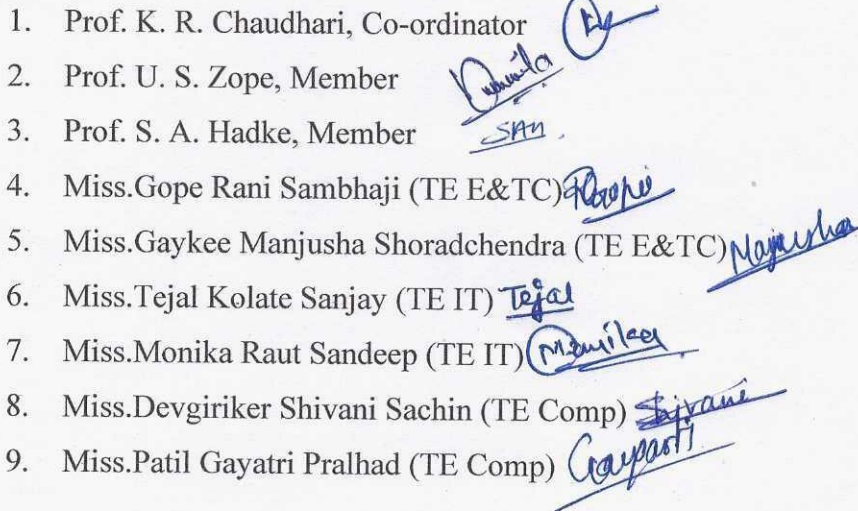 1. Prof. K. R. Chaudhari, Co-ordinator
2. Prof. U. S. Zope, Member
3. Prof. S. A. Hadke, Member SAH.
4. Miss.Gope Rani Sambhaji (TE E&TC)
5. Miss.Gaykee Manjusha Shoradchendra (TE E&TC) Manjusha
6. Miss.Tejal Kolate Sanjay (TE IT) Tejal
7. Miss.Monika Raut Sandeep (TE IT)
8. Miss.Devgiriker Shivani Sachin (TE Comp) Shivani
9. Miss.Patil Gayatri Pralhad (TE Comp)